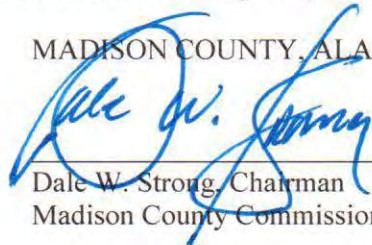 MADISON COUNTY, ALA
Dale W. Strong
Dale W. Strong, Chairman
Madison County Commission